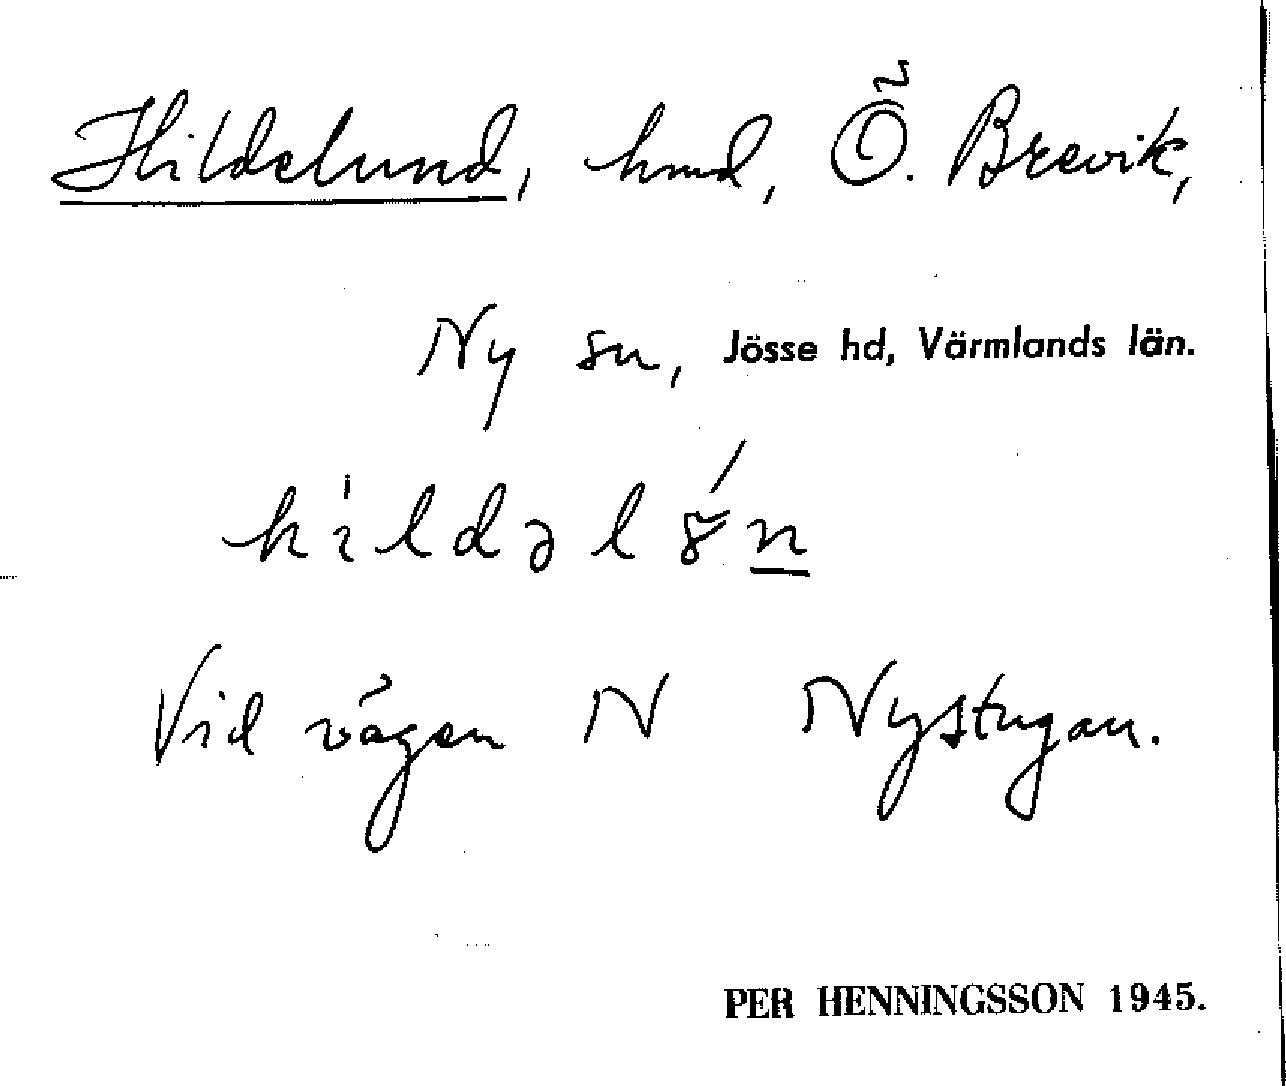 Hildelund, hmd, Ö. Brevik,
Ny sn, Jösse hd, Värmlands län.
Vid vägen N Nystugan.
PER HENNINGSSON 1945.